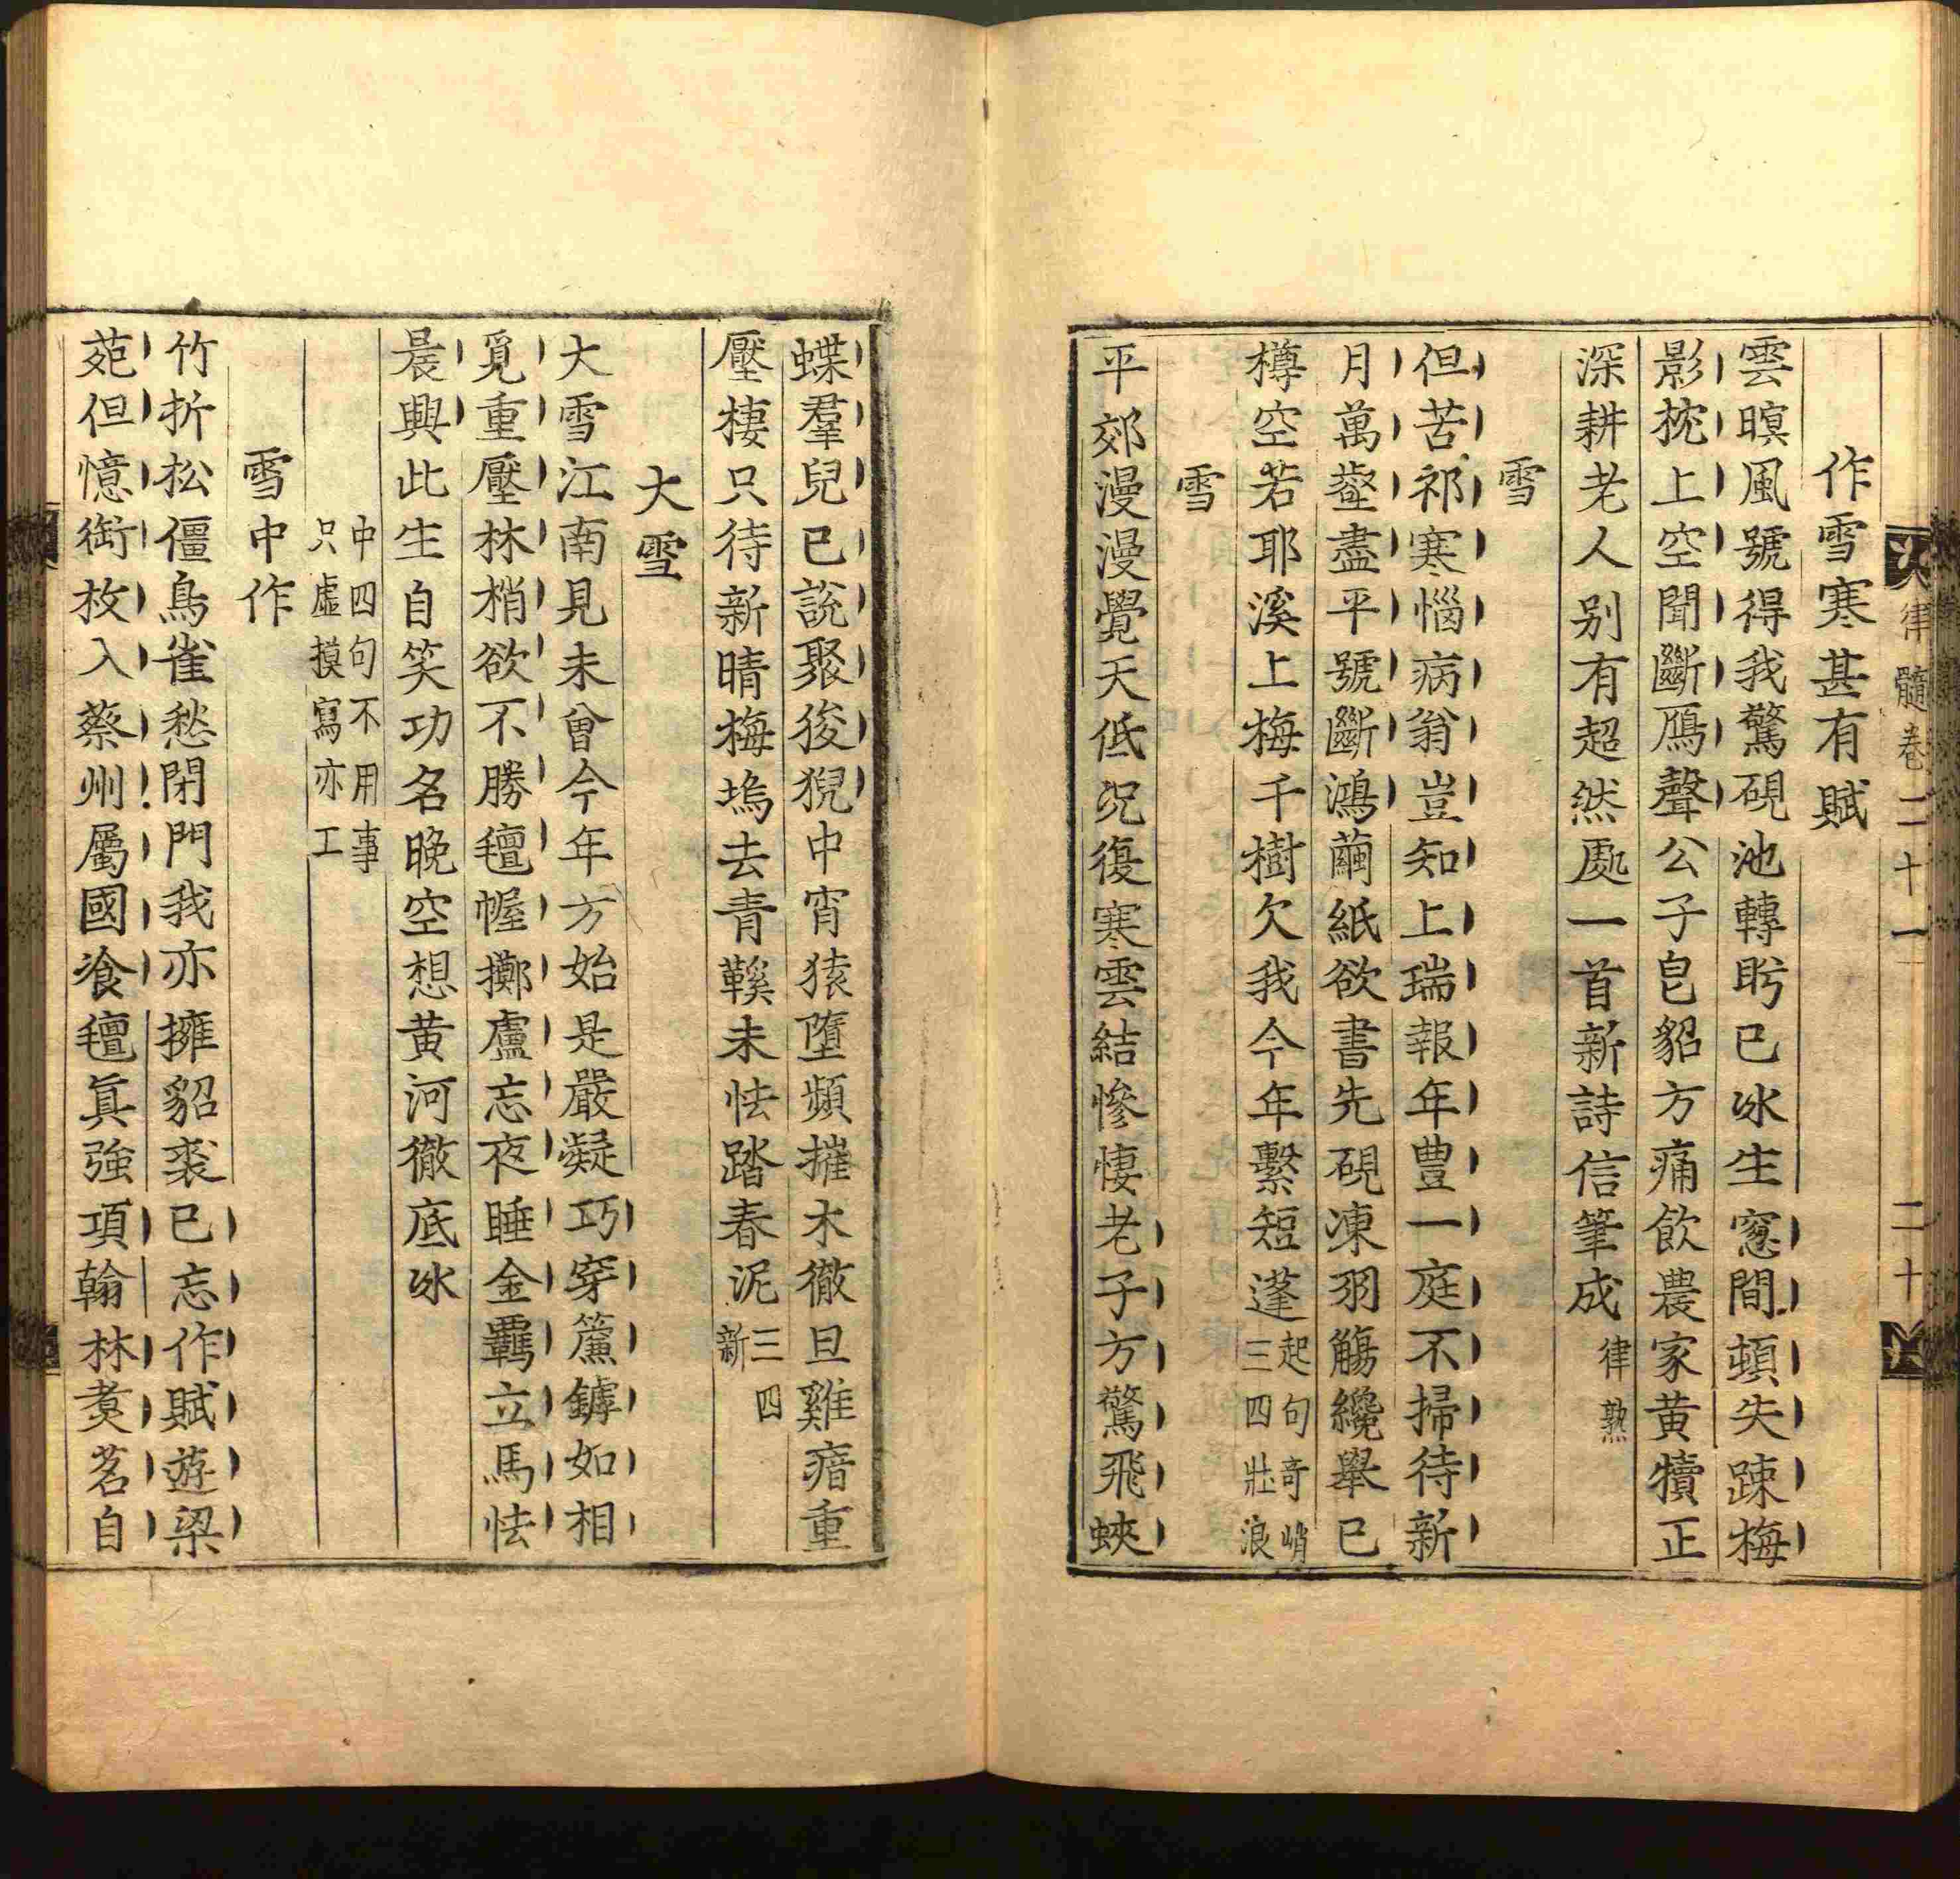 律髓卷二十一 二十
作雪寒甚有賦
雲暝風號得我驚硯池轉眄已冰生窓間頓失踈梅
影枕上空聞斷鴈聲公子皂貂方痛飲農家黄犢正
深耕老人别有超然處一首新詩信筆成律熟
雪
但苦祁寒惱病翁豈知上瑞報年豊一庭不掃待新
月萬壑盡平號斷鴻繭紙欲書先硯凍羽觴纔舉已
樽空若耶溪上梅千樹欠我今年繫短蓬起句奇峭三四壯浪
雪
平郊漫漫覺天低况復寒雲結慘悽老子方驚飛蛺
蝶羣兒已說聚狻猊中宵猿墮頻摧木徹旦雞瘖重
壓棲只待新晴梅塢去青鞵未怯踏春泥三四新
大雪
大雪江南見未曾今年方始是嚴凝巧穿簾罅如相
覓重壓林梢欲不勝氊幄擲盧忘夜睡金羈立馬怯
晨興此生自笑功名晚空想黄河徹底冰
中四句不用事
只虛摸寫亦工
雪中作
竹折松僵鳥雀愁閉門我亦擁貂裘已忘作賦遊梁
苑但憶銜枚入蔡州屬國飡氊真強項翰林煑茗自